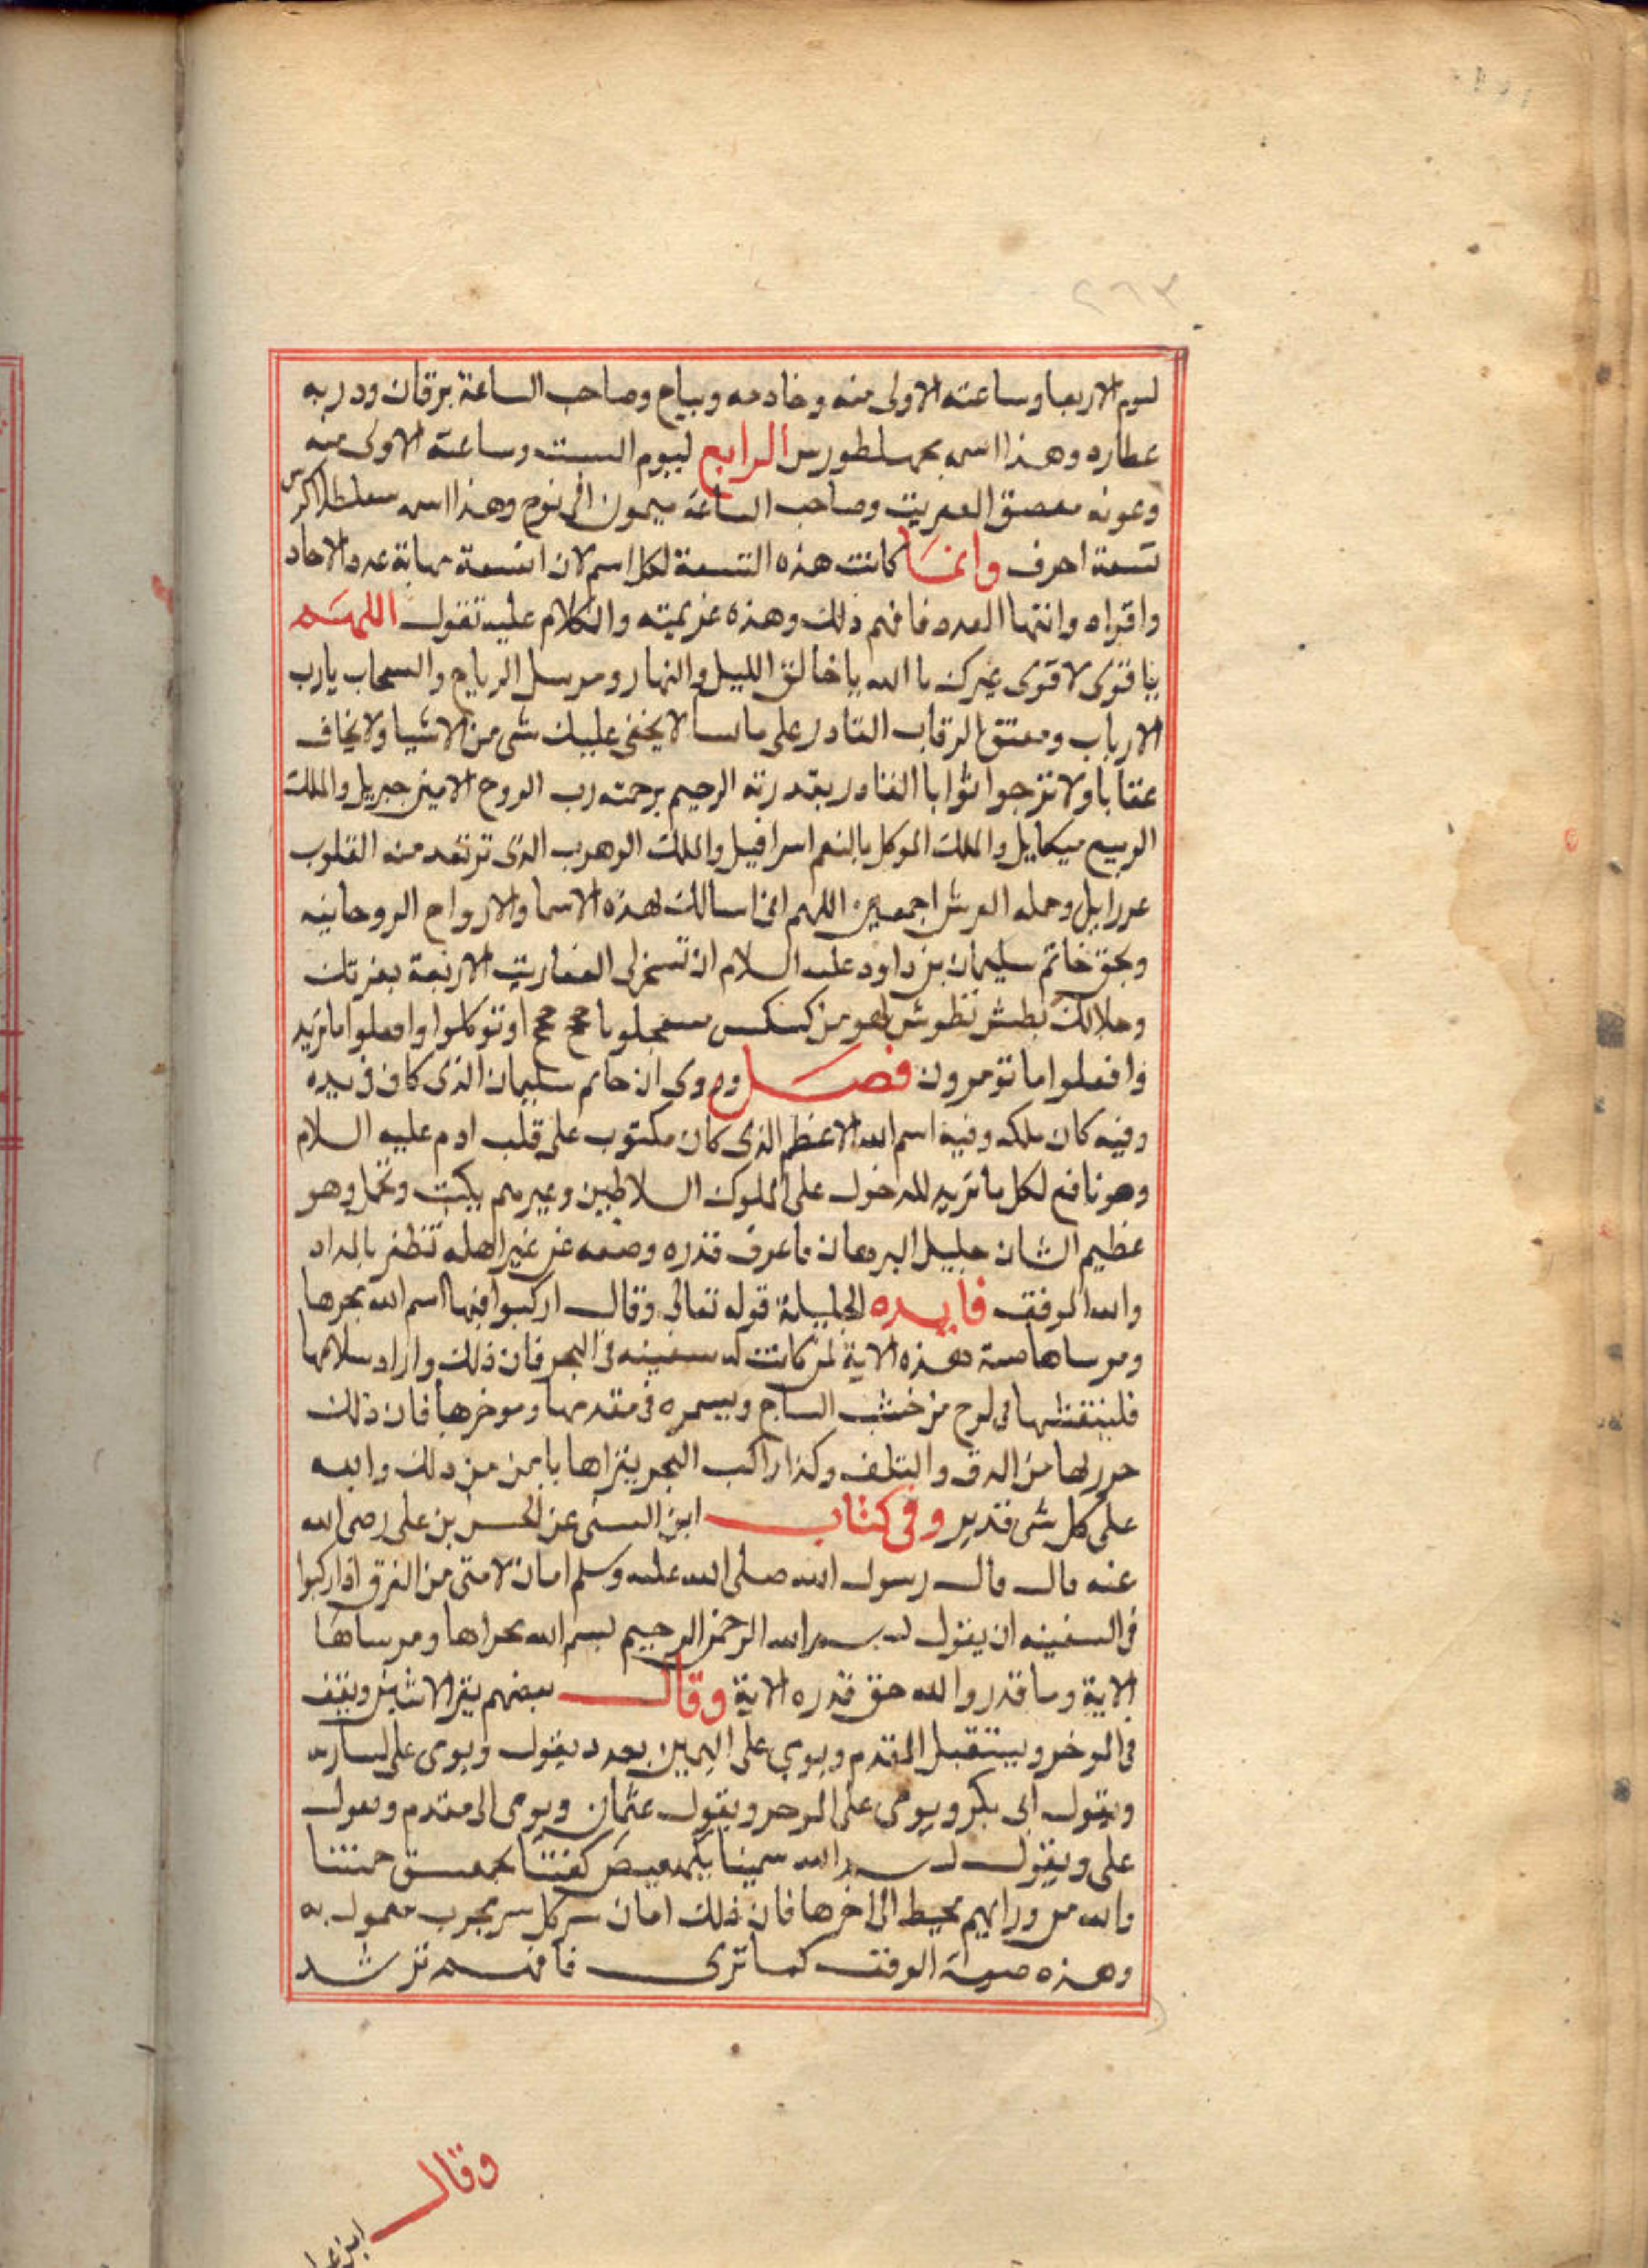 ٢٦٣
ليوم الاربعا وساعته الاولى منه وخادمه وبياح وصاحب الساعة برقان ودربه
عطارد وهذا اسمه الرابع ليوم السبت وساعته الاولى منه
وعونه معصق العفريت وصاحب الساعة ميمون ابى نوح وهذا اسمه
تسعة احرف وانما كانت هذه التسعة لكل اسم لان التسعة نهاية عدد الاحاد
واقراه وانتها العدد فافهم ذلك وهذه عزيمته والكلام عليه تقول اللهم
يا قوى لا قوى غيرك يا الله يا خالق الليل والنهار ومرسل الرياح والسحاب يارب
الارباب ومعتق الرقاب القادر على ما يشا لا يخفى عليك شى من الاشيا ولا يخاف
عقابا ولا ترجوا ثوابا القادر بقدرته الرحيم برحمته رب الروح الامين جبريل والملك
الوسيع ميكايل والملك الموكل بالنعم اسرافيل والملك الوهوب الذى ترتعد منه القلوب
عزرايل وحمله العرش اجمعين اللهم انى اسالك بهذه الاسما والارواح الروحانيه
وبحق خاتم سليمان بن داود عليه السلام ان تسخر لى العفاريت الاربعة بعزتك
وجلالك بطش اوتوكلوا وافعلوا ما تريد
وافعلوا ما تومرون فصل وروي ان خاتم سليمان الذى كان فى يده
وفيه كان ملكه وفيه اسم الله الاعظم الذى كان مكتوب على قلب ادم عليه السلام
وهو نافع لكل ما تريد للدخول على الملوك السلاطين وغيرهم يكتب وتحمل وهو
عظيم الشان جليل البرهان ما عرف قدره وصنه عن غير اهله تظفر بالمراد
والله الموفق فايده الجليلة قوله تعالى وقال اركبوا فيها اسم الله مجرها
ومرساها هذه الاية لمن كانت له سفينه فى البحر فان ذلك واراد سلامتها
فلينقشها فى لوح من خشب الساج ويسمره فى مقدمها وموخرها فان ذلك
حرز لها من الغرق والتلف وكذا راكب البحر يقراها يامن من ذلك والله
على كل شى قدير وفى كتاب ابن السنى عن الحسن بن على رضى الله
عنه قال قال رسول الله صلى الله عليه وسلم امان لامتى من الغرق اذا ركبوا
فى السفينه ان يقول بسم الله الرحمن الرحيم بسم الله مجراها ومرساها
الاية وما قدروا الله حق قدره الاية وقال بعضهم يقرا الاثنين ويقف
فى الموخر ويستقبل المقدم ويومي على اليمين يقول ويومى على يساره
ويقول ابى بكر ويومى على الموخر ويقول عثمان ويومى الى مقدم ويقول
على ويقول بسم الله سمينا بكهيعص كفتنا بحمعسق حمتنا
والله من ورايهم محيط الى اخرها فان ذلك امان سر كل سر مجرب معمول به
وهذه صورة الوفق كما ترى فافهم ترشد
وقال